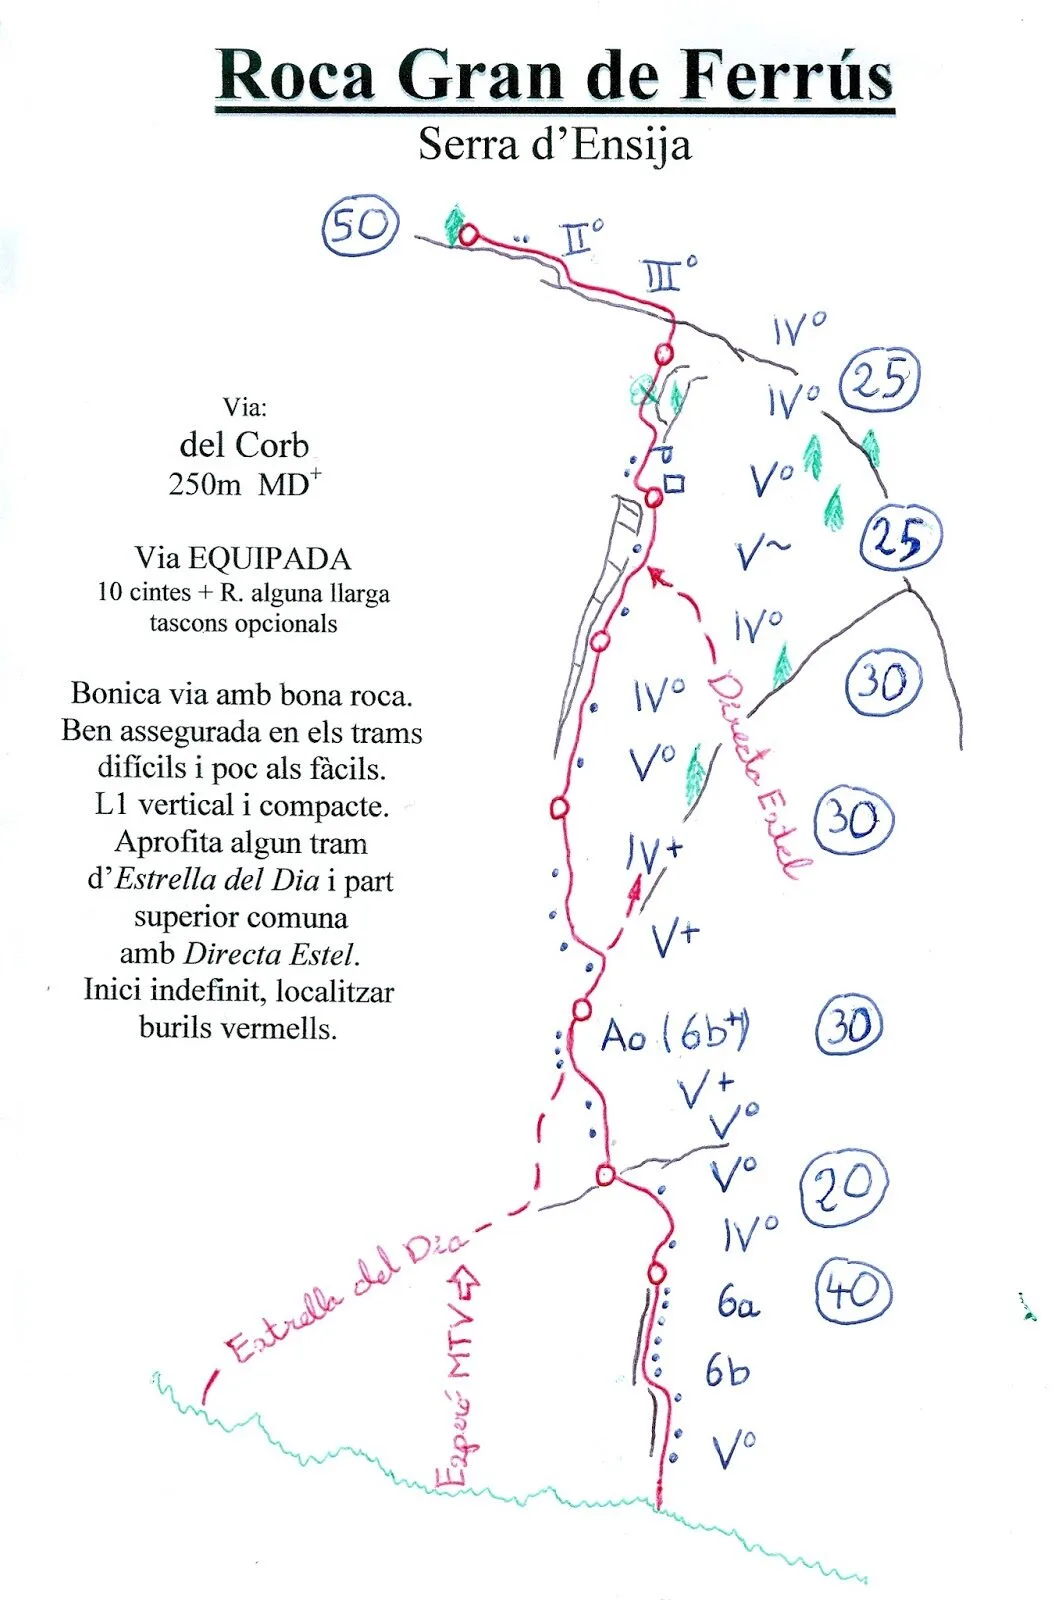 Roca Gran de Ferrús
Serra d'Ensija
50
II°
III°
IV°
25
IV°
Via:
del Corb
250m MD+
V°
25
V~
Via EQUIPADA
10 cintes + R. alguna llarga
tascons opcionals
IV°
30
IV°
Directa Estel
Bonica via amb bona roca.
Ben assegurada en els trams
difícils i poc als fàcils.
L1 vertical i compacte.
Aprofita algun tram
d'Estrella del Dia i part
superior comuna
amb Directa Estel.
Inici indefinit, localitzar
burils vermells.
V°
30
IV+
V+
Ao (6b+)
30
V+
V°
V°
20
IV°
Estrella del Dia
40
6a
6b
Esperó MTV
V°